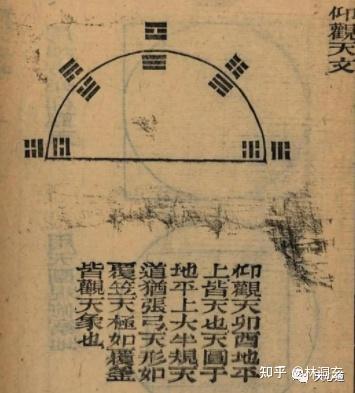 仰觀天文
仰觀天卯酉地平
上皆天也天圓于
地平上大半規天
道猶張弓天形如
覆笠天極如覆釜
皆觀天象也
知乎 @林洞玄